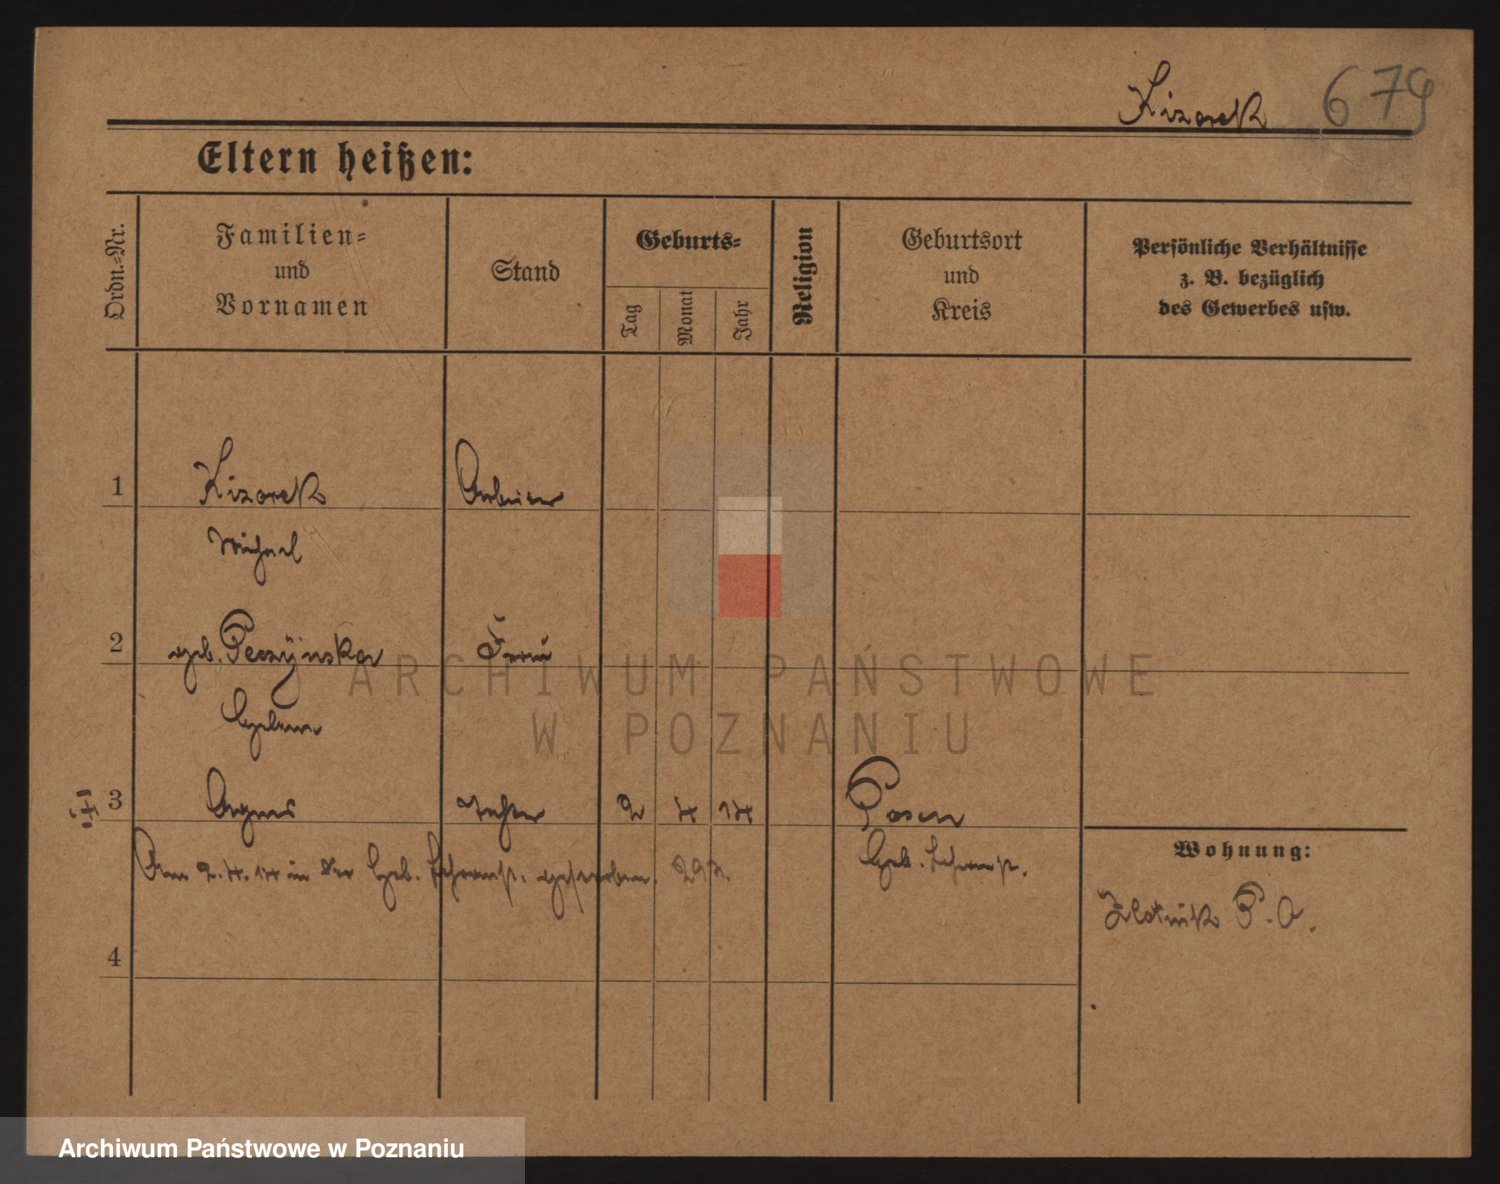 Kizorek 679
Eltern heißen:
Ordn.-Nr.
Familien-
und
Vornamen
Stand
Geburts-
Tag
Monat
Jahr
Religion
Geburtsort
und
Kreis
Persönliche Verhältnisse
z. B. bezüglich
des Gewerbes usw.
1 Kizorek Arbeiter
Michael
2 geb. Peczynska Frau
3 Agnes Tochter 2 4 14 Posen
Am 2.4.14 in der Heb. Lehranst. gestorben. 292.
Heb. Lehranst.
4
Wohnung:
Zlotnik P.O.
ARCHIWUM PAŃSTWOWE
W POZNANIU
Archiwum Państwowe w Poznaniu